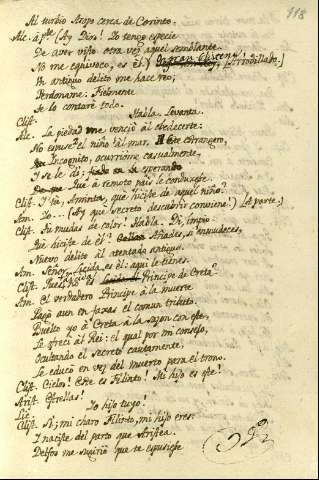 118
Al turbio Asopo cerca de Corinto.
Alc. á pte. (Ay Dios! Yo tengo especie
De aver visto otra vez aquel semblante.
No me equivoco, es él.) O gran [Arrodillado.]
Un antiguo delito me hace reo;
Perdoname: Fielmente
Te lo contaré todo.
Clist. Habla. Levanta.
Alc. La piedad me venció al obedecerte:
No expuse el niño al mar. A Este estrangero,
Incognito, ocurriome casualmente,
I se le dí; esperando
Que á remoto país le conduxese.
Clist. I tú, Aminta, que hiciste de aquel niño?
Am. Yo... (Ay qué secreto descubrir conviene!) [A parte.]
Clist. Tu mudas de color. Habla. Di, impio
Qué hiciste de él? Añades, si enmudeces,
Nuevo delito al atentado antiguo.
Am. Señor, Licida, es él: aqui le tienes.
Clist. Pues no es Principe de Creta?
Am. El verdadero Principe á la muerte
Pagó aun en faxas el comun tributo.
Buelto yo á Creta á la sazon con este,
Le ofreci al Rei: el qual por mi consejo,
Ocultando el secreto cautamente,
Le educó en vez del muerto para el trono.
Clist. Cielos! Este es Filinto! Mi hijo es este!
Arist. Estrellas!
Lic. Yo hijo tuyo!
Clist. Sí, mi charo Filinto, mi hijo eres.
I naciste del parto que Aristea.
Delfos me sugirió que te expusiese